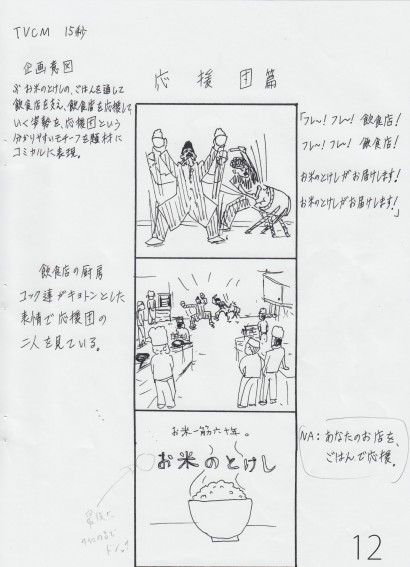 TVCM 15秒
企画意図
応援団篇
お米のとけしの、ごはんを通して
飲食店を支え、飲食店を応援して
いく姿勢を、応援団という
分かりやすいモチーフを題材に
コミカルに表現。
「フレ〜!フレ〜!飲食店!
フレ〜!フレ〜!飲食店!
お米のとけしがお届けします!
お米のとけしがお届けします!」
飲食店の厨房
コック達がキョトンとした
表情で応援団の
二人を見ている。
お米一筋六十年。
お米のとけし
NA:あなたのお店を、
ごはんで応援。
12